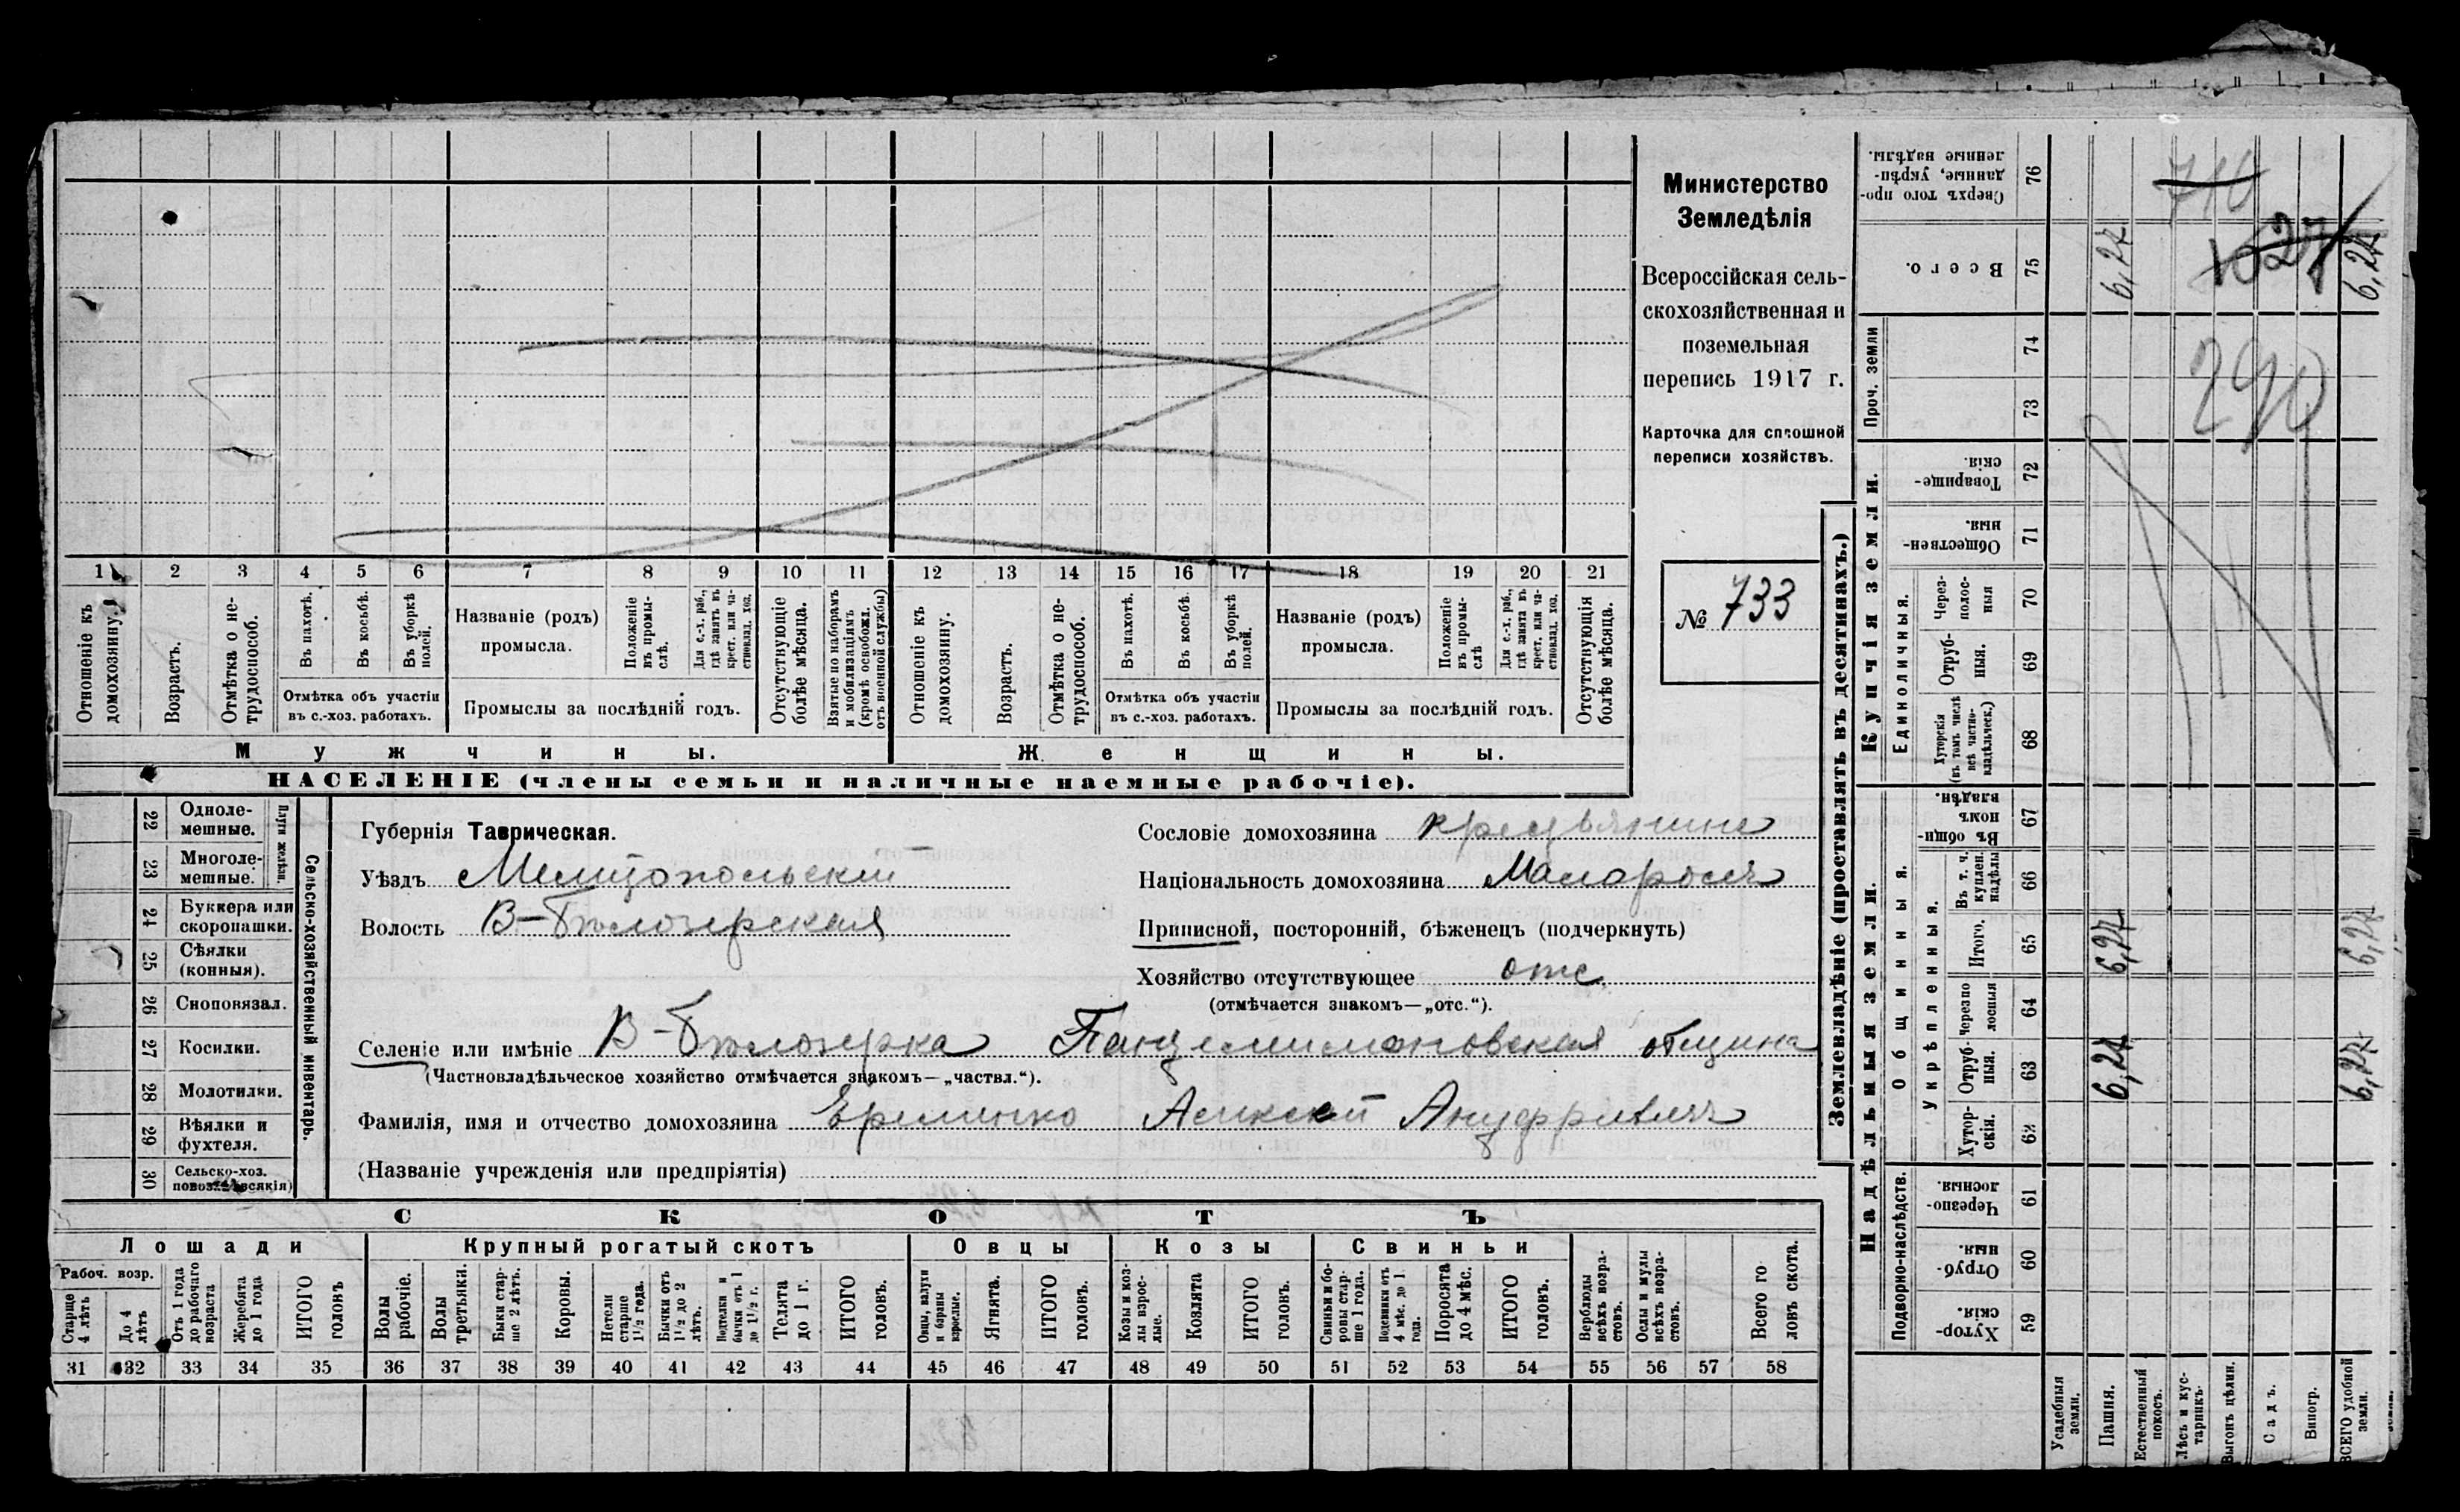 Министерство
Земледѣлія
Всероссійская сель-
скохозяйственная и
поземельная
перепись 1917 г.
Карточка для сплошной
переписи хозяйствъ.
№ 733
1 2 3 4 5 6 7 8 9 10 11 12 13 14 15 16 17 18 19 20 21
Отношеніе къ домохозяину.
Возрастъ.
Отмѣтка о не-трудоспособ.
Въ пахотѣ.
Въ косьбѣ.
Въ уборкѣ полой.
Отмѣтка объ участіи
въ с.-хоз. работахъ.
Названіе (родъ)
промысла.
Положеніе въ промы-слѣ.
Для с.-х. раб., гдѣ занятъ въ крест. или ча-стновлад. хоз.
Промыслы за послѣдній годъ.
Отсутствующіе болѣе мѣсяца.
Взятые по наборамъ и мобилизаціямъ (кромѣ освобожд. отъ военной службы)
Отношеніе къ домохозяину.
Возрастъ.
Отмѣтка о не-трудоспособ.
Въ пахотѣ.
Въ косьбѣ.
Въ уборкѣ полой.
Отмѣтка объ участіи
въ с.-хоз. работахъ.
Названіе (родъ)
промысла.
Положеніе въ промы-слѣ
Для с.-х. раб., гдѣ занята въ крест. или ча-стновлад. хоз.
Промыслы за послѣдній годъ.
Отсутствующія болѣе мѣсяца.
Мужчины.
Женщины.
НАСЕЛЕНІЕ (члены семьи и наличные наемные рабочіе).
Сельско-хозяйственный инвентарь.
Плуги желѣзн.
22 Одноле-мешные.
23 Многоле-мешные.
24 Буккера или скоропашки.
25 Сѣялки (конныя).
26 Сноповязал.
27 Косилки.
28 Молотилки.
29 Вѣялки и фухтеля.
30 Сельско-хоз. повоз. (всякія)
Губернія Таврическая.
Уѣздъ Мелитопольскій
Волость В-Бѣлозерская
Сословіе домохозяина крестьянинъ
Національность домохозяина Малороссъ
Приписной, посторонній, бѣженецъ (подчеркнуть)
Хозяйство отсутствующее отс.
(отмѣчается знакомъ—„отс.“).
Селеніе или имѣніе В-Бѣлозерка Панцелимоновская община
(Частновладѣльческое хозяйство отмѣчается знакомъ—„частвл.“).
Фамилія, имя и отчество домохозяина Еременко Алексѣй Ануфріевичъ
(Названіе учрежденія или предпріятія)
СКОТЪ
Лошади
Рабоч. возр.
Старше 4 лѣтъ
До 4 лѣтъ
Отъ 1 года до рабочаго возраста
Жеребята до 1 года
ИТОГО головъ
Крупный рогатый скотъ
Волы рабочіе.
Волы третьяки.
Быки стар-ше 2 лѣтъ.
Коровы.
Нетели старше 1½ года.
Бычки отъ 1½ до 2 лѣтъ.
Подтелки и бычки отъ 1 до 1½ г.
Телята до 1 г.
ИТОГО головъ.
Овцы
Овцы, валухи и бараны взрослые.
Ягнята.
ИТОГО головъ.
Козы
Козы и коз-лы взрос-лые.
Козлята
ИТОГО головъ.
Свиньи
Свиньи и бо-ровы стар-ше 1 года.
Подсвинки отъ 4 мѣс. до 1 года.
Поросята до 4 мѣс.
ИТОГО головъ.
Верблюды всѣхъ возра-стовъ.
Ослы и мулы всѣхъ возра-стовъ.
Всего го-ловъ скота.
31 32 33 34 35 36 37 38 39 40 41 42 43 44 45 46 47 48 49 50 51 52 53 54 55 56 57 58
Землевладѣніе (проставлять въ десятинахъ.)
Сверхъ того про-данные, укрѣп-ленные надѣлы. 76
710
Всего. 75
6,27
1627
6,27
Проч. земли
74
73
290
Купчія земли.
Товарище-скія. 72
Обществен-ныя. 71
Единоличныя.
Через-полос-ныя 70
Отруб-ныя. 69
Хуторскія (въ томъ числѣ всѣ частно-владѣльческ.) 68
Надѣльныя земли.
Общинныя.
Въ общин-номъ владѣн. 67
Укрѣпленныя.
Въ т. ч. куплен. надѣлы 66
Итого. 65
6,27
6,27
Черезпо-лосныя 64
Отруб-ныя. 63
6,27
6,27
Хутор-скія. 62
Подворно-наслѣдств.
Черезпо-лосныя. 61
Отруб-ныя. 60
Хутор-скія. 59
Усадебныя земли.
Пашня.
Естественный покосъ.
Лѣсъ и кус-тарникъ.
Выгонъ цѣлин.
Садъ.
Виногр.
ВСЕГО удобной земли.